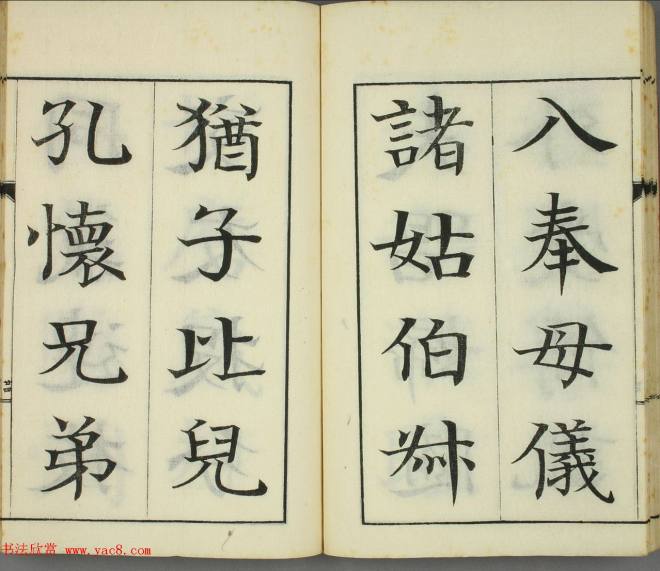 入奉母儀
諸姑伯叔
猶子比兒
孔懷兄弟
书法欣赏 www.yac8.com